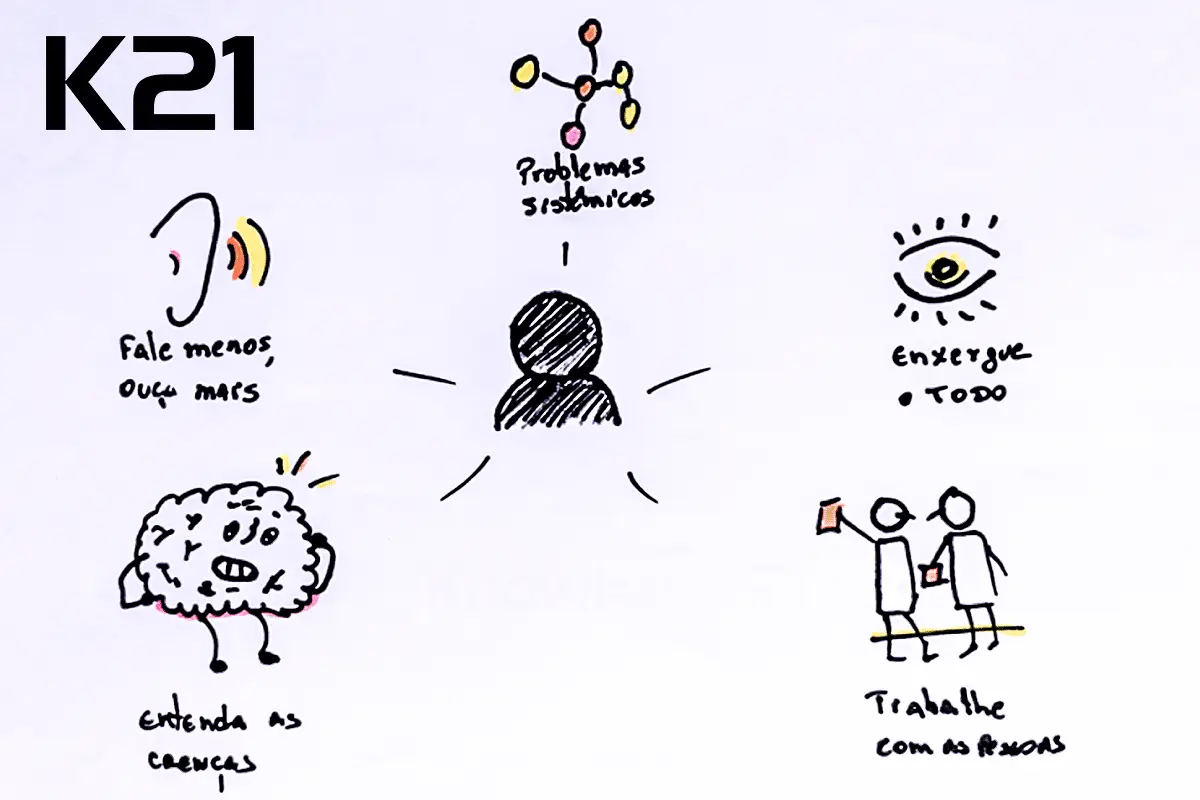 K21
Problemas
sistêmicos
Fale menos,
ouça mais
Enxergue
o TODO
Entenda as
crenças
Trabalhe
com as pessoas